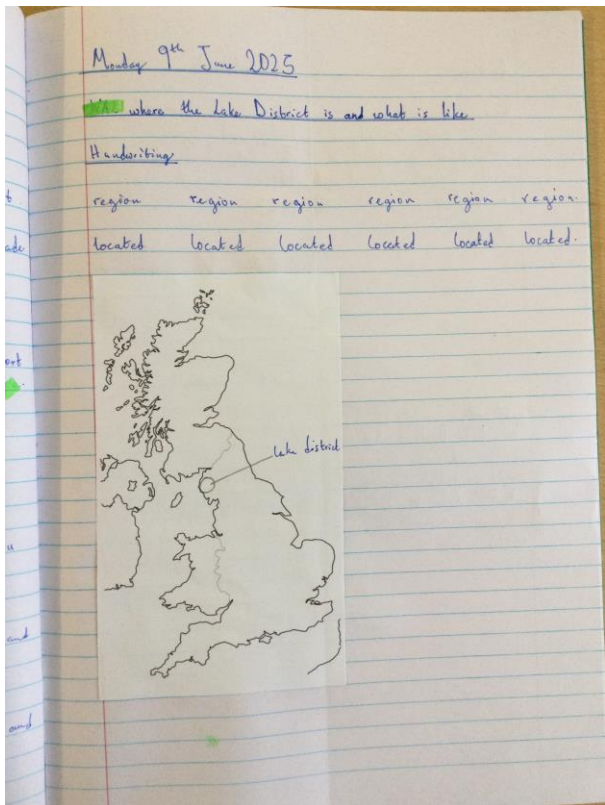 Monday 9th June 2025
WAL where the Lake District is and what is like
Handwriting
region region region region region region.
located located located located located located.
Lake district
ade
ort
u
and
and